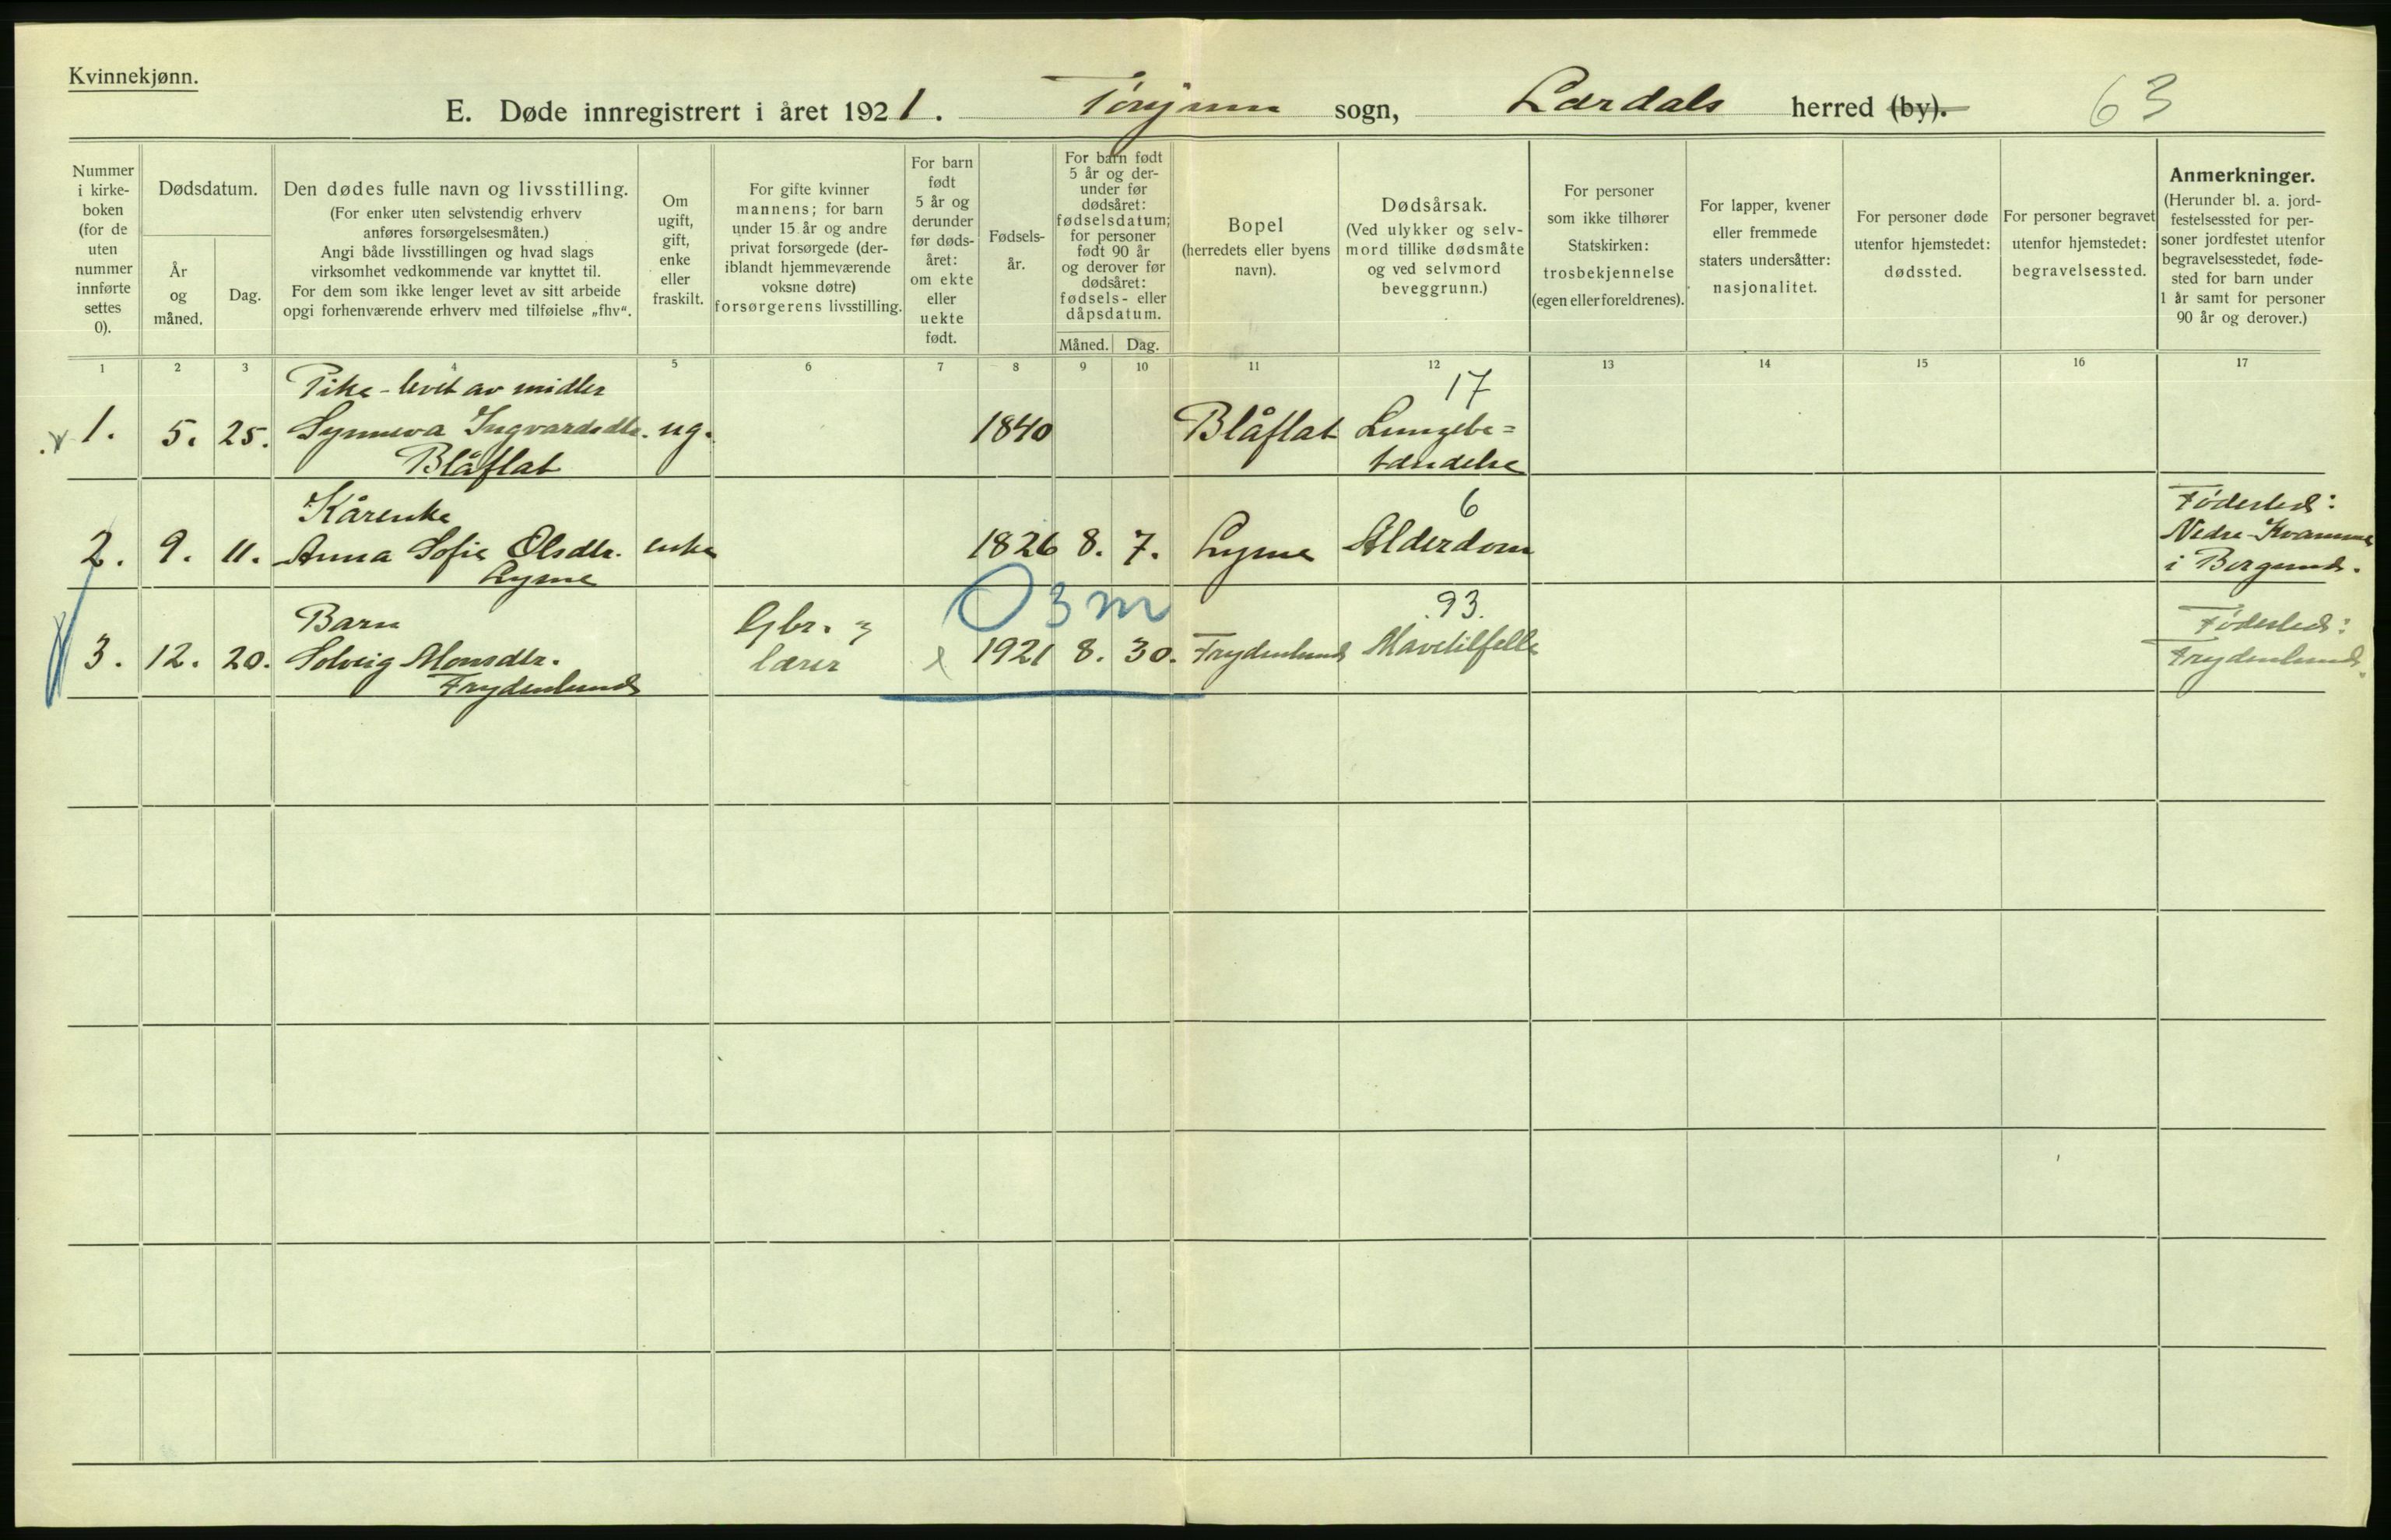 Kvinnekjønn.
E. Døde innregistrert i året 1921. Tønjum sogn, Lærdals herred (by). 63
Nummer i kirke-boken (for de uten nummer innførte settes 0).
Dødsdatum.
År og måned.
Dag.
Den dødes fulle navn og livsstilling.
(For enker uten selvstendig erhverv anføres forsørgelsesmåten.)
Angi både livsstillingen og hvad slags virksomhet vedkommende var knyttet til.
For dem som ikke lenger levet av sitt arbeide opgi forhenværende erhverv med tilføielse „fhv“.
Om ugift, gift, enke eller fraskilt.
For gifte kvinner mannens; for barn under 15 år og andre privat forsørgede (der-iblandt hjemmeværende voksne døtre) forsørgerens livsstilling.
For barn født 5 år og derunder før døds-året: om ekte eller uekte født.
Fødsels-år.
For barn født 5 år og der-under før dødsåret: fødselsdatum; for personer født 90 år og derover før dødsåret: fødsels- eller dåpsdatum.
Måned. Dag.
Bopel
(herredets eller byens navn).
Dødsårsak.
(Ved ulykker og selv-mord tillike dødsmåte og ved selvmord beveggrunn.)
For personer som ikke tilhører Statskirken: trosbekjennelse (egen eller foreldrenes).
For lapper, kvener eller fremmede staters undersåtter: nasjonalitet.
For personer døde utenfor hjemstedet: dødssted.
For personer begravet utenfor hjemstedet: begravelsessted.
Anmerkninger.
(Herunder bl. a. jord-festelsessted for per-soner jordfestet utenfor begravelsesstedet, føde-sted for barn under 1 år samt for personer 90 år og derover.)
1 2 3 4 5 6 7 8 9 10 11 12 13 14 15 16 17
Pike - levet av midler 17
1. 5. 25. Synneva Ingvardsdtr. ug. 1840 Blåflat Lungebe=
Blåflat tændelse
Kårenke 6 Fødested:
2. 9. 11. Anna Sofie Olsdtr. enke 1826 8. 7. Lysne Alderdom Nedre-Kvamme
Lysne i Borgund.
03m
Barn Gbr. 93. Fødested:
3. 12. 20. Solveig Monsdtr. lærer e 1921 8. 30. Frydenlund Mavetilfelle Frydenlund.
Frydenlund